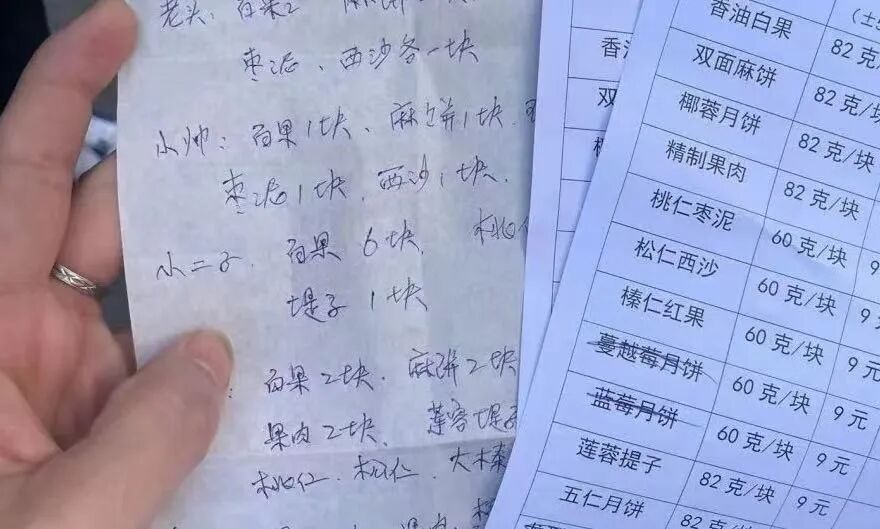 老头：百果2
枣泥、西沙各一块
小帅：百果1块、麻饼1块、
枣泥1块、西沙1块、
小二子、百果 6块、桃仁
堤子 1块
：百果2块、麻饼2块
果肉2块、莲容堤子
桃仁、松仁、大榛
果肉、
香
双
香油白果
82克
双面麻饼 82克/块
椰蓉月饼 82克/块
精制果肉 82克/块
桃仁枣泥 60克/块 9
松仁西沙 60克/块 9元
榛仁红果 60克/块 9元
蔓越莓月饼 60克/块 9元
蓝莓月饼 60克/块 9元
莲蓉提子 82克/块 9元
五仁月饼 82克/块